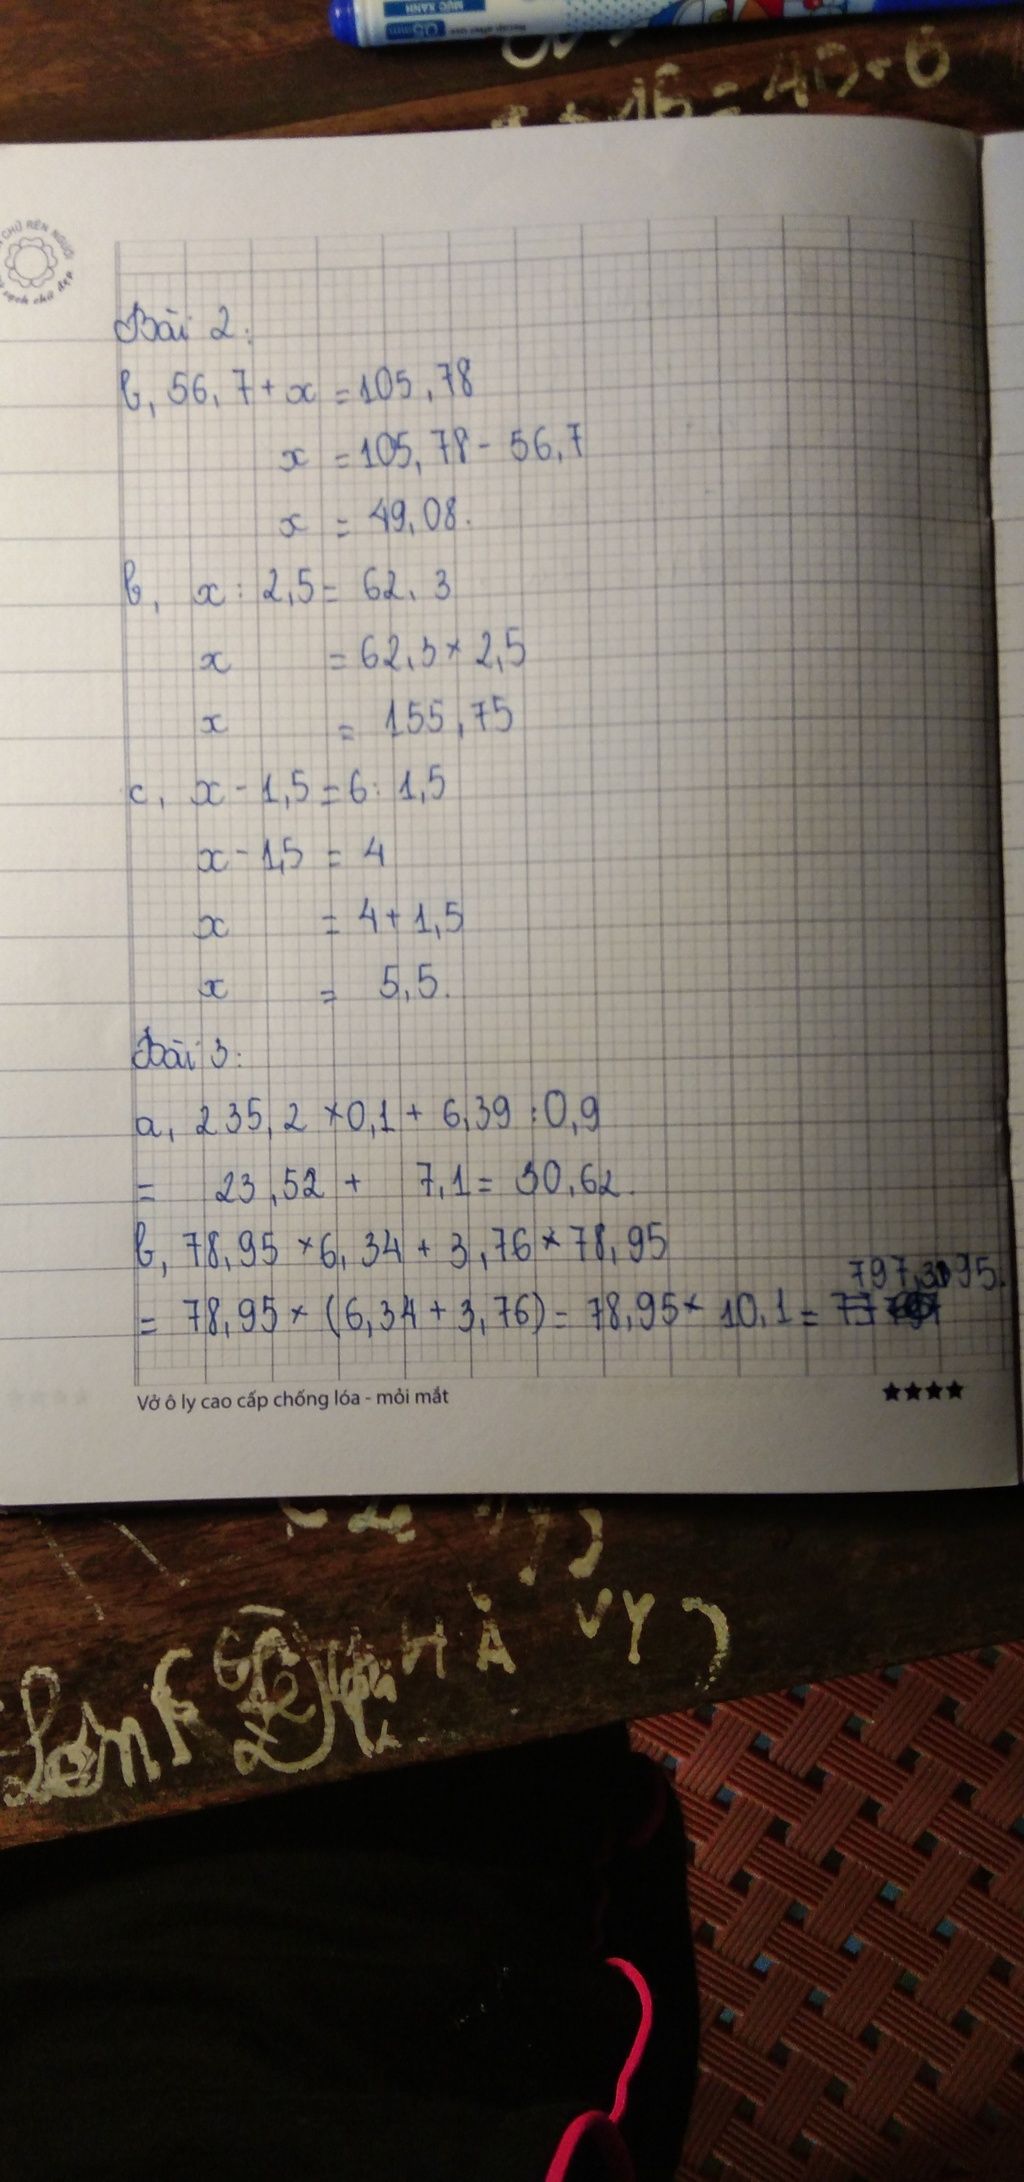 + 16 = 40 + 6
CHỮ RÈN NGƯỜI
sạch chữ đẹp
Bài 2:
b, 56,7 + x = 105,78
x = 105,78 - 56,7
x = 49,08.
b, x : 2,5 = 62,3
x = 62,3 × 2,5
x = 155,75
c, x - 1,5 = 6 : 1,5
x - 1,5 = 4
x = 4 + 1,5
x = 5,5.
Bài 3:
a, 235,2 × 0,1 + 6,39 : 0,9
= 23,52 + 7,1 = 30,62.
b, 78,95 × 6,34 + 3,76 × 78,95
= 78,95 × (6,34 + 3,76) = 78,95 × 10,1 =
Vở ô ly cao cấp chống lóa - mỏi mắt
HÀ VY